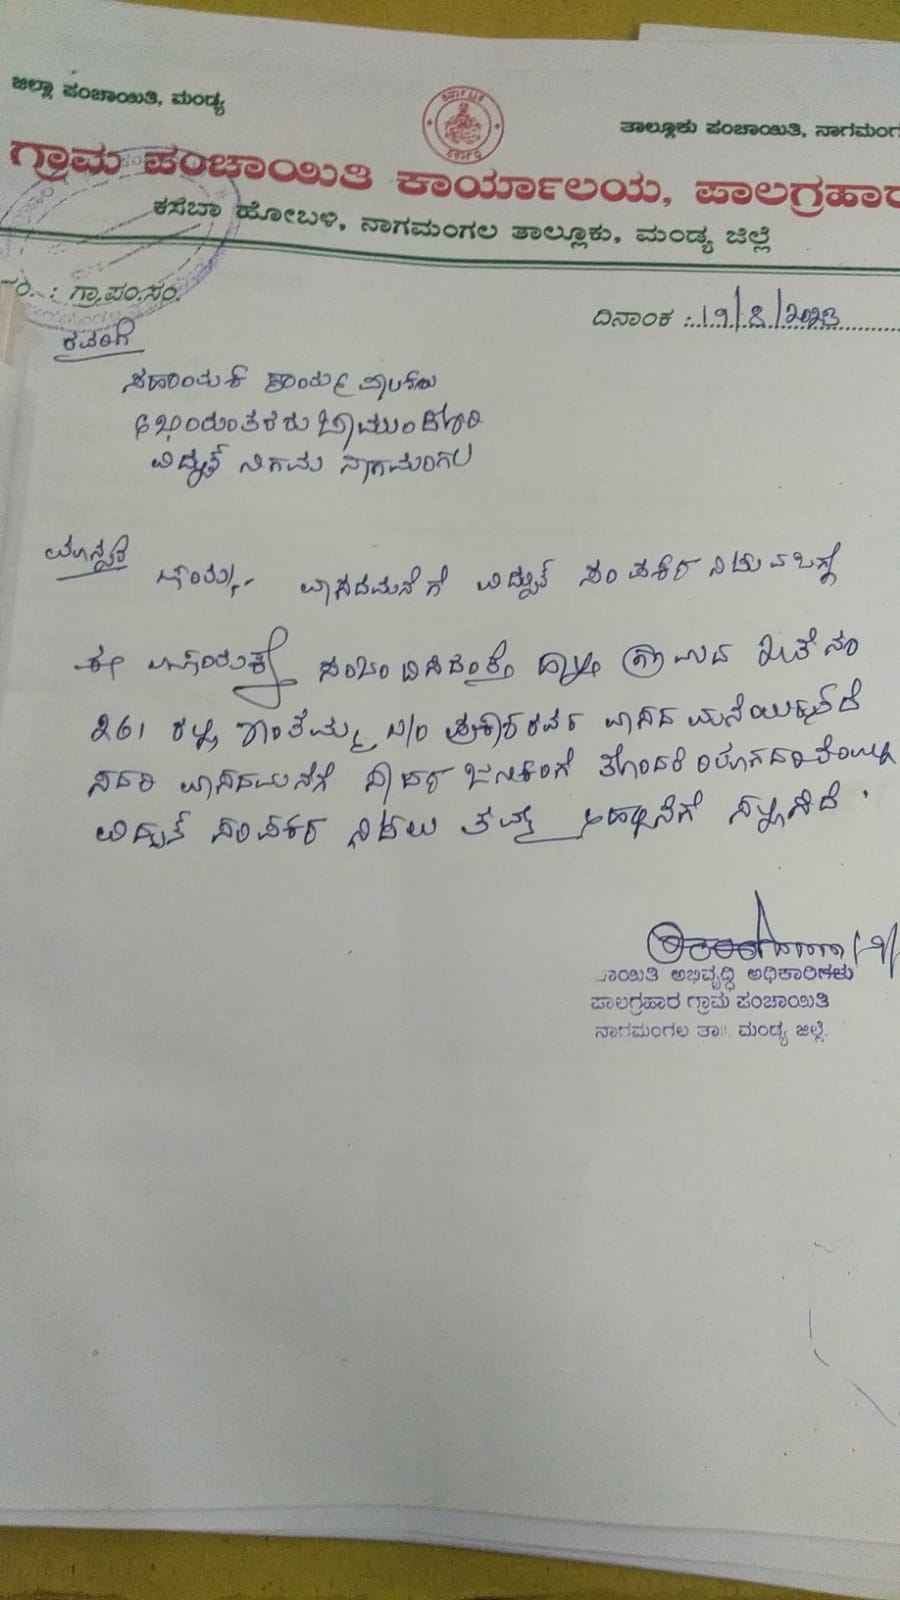 ಜಿಲ್ಲಾ ಪಂಚಾಯಿತಿ, ಮಂಡ್ಯ
ತಾಲ್ಲೂಕು ಪಂಚಾಯಿತಿ, ನಾಗಮಂಗ
ಗ್ರಾಮ ಪಂಚಾಯಿತಿ ಕಾರ್ಯಾಲಯ, ಪಾಲಗ್ರಹಾರ
ಕಸಬಾ ಹೋಬಳಿ, ನಾಗಮಂಗಲ ತಾಲ್ಲೂಕು, ಮಂಡ್ಯ ಜಿಲ್ಲೆ
ಸಂ. : ಗ್ರಾ.ಪಂ.ಸಂ.
ದಿನಾಂಕ : 19/8/2023
ರವರಿಗೆ
ಸಹಾಯಕ ಕಾರ್ಯ ಪಾಲಕರು
ಚಾಮುಂಡೇಶ್ವರಿ
ವಿದ್ಯುತ್ ನಿಗಮ ನಾಗಮಂಗಲ
ಮಾನ್ಯರೆ
ವಾಸದಮನೆಗೆ ವಿದ್ಯುತ್ ಸಂಪರ್ಕ ನೀಡುವ ಬಗ್ಗೆ
ಈ ವಿಷಯಕ್ಕೆ ಸಂಬಂದಿಸಿದಂತೆ ಗ್ರಾಮದ ಖಾತೆ ನಂ
261 ರಲ್ಲಿ ಶಾಂತಮ್ಮ ವಾಸದ ಮನೆಯಿರುತ್ತದೆ
ಸದರಿ ವಾಸದಮನೆಗೆ ಸಾರ್ವಜನಿಕರಿಗೆ ತೊಂದರೆ
ವಿದ್ಯುತ್ ಸಂಪರ್ಕ ನೀಡಲು ತಮ್ಮ
ಾಯಿತಿ ಅಭಿವೃದ್ಧಿ ಅಧಿಕಾರಿಗಳು
ಪಾಲಗ್ರಹಾರ ಗ್ರಾಮ ಪಂಚಾಯಿತಿ
ನಾಗಮಂಗಲ ತಾ॥ ಮಂಡ್ಯ ಜಿಲ್ಲೆ.